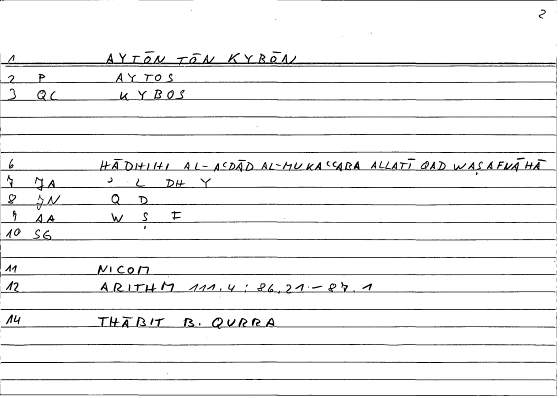 2
1 AYTŌN TŌN KYBŌN
2 P AYTOS
3 QC KYBOS
6 HĀDHIHI AL-AʿDĀD AL-MUKAʿʿABA ALLATĪ QAD WAṢAFNĀHĀ
7 JA ʾ L DH Y
8 JN Q D
9 AA W Ṣ F
10 SG
11 NICOM
12 ARITHM 111.4 : 86,21-87.1
14 THĀBIT B. QURRA